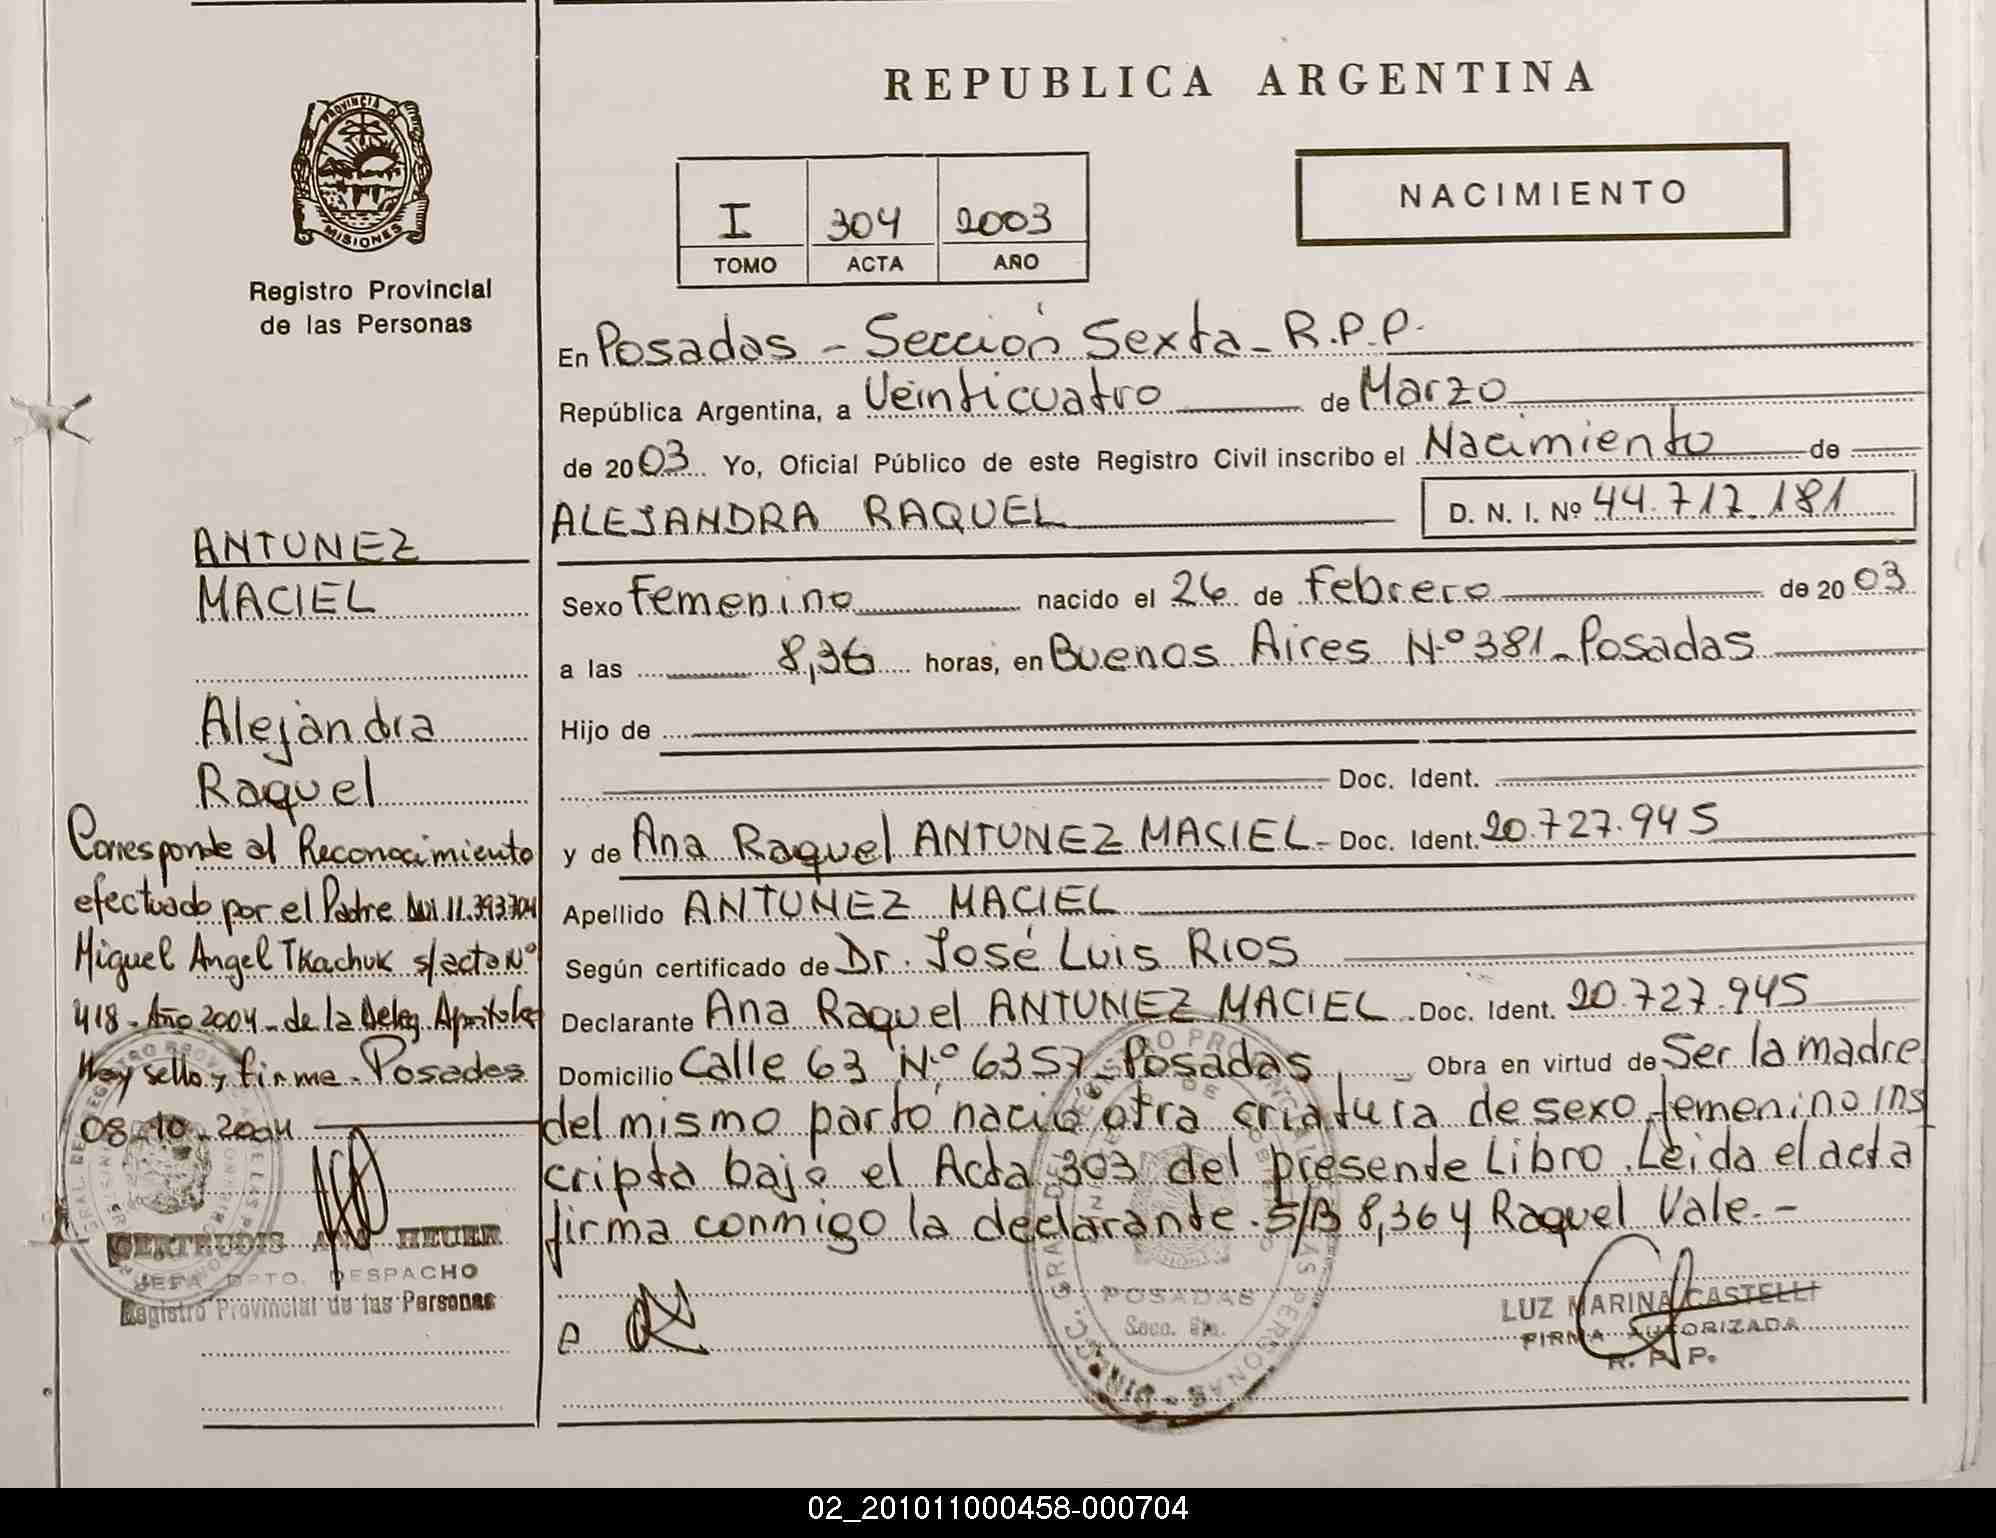 REPUBLICA ARGENTINA
PROVINCIA DE
MISIONES
Registro Provincial
de las Personas
I 304 2003
TOMO ACTA AÑO
NACIMIENTO
En Posadas - Sección Sexta - R.P.P.
República Argentina, a Veinticuatro de Marzo
de 2003 Yo, Oficial Público de este Registro Civil inscribo el Nacimiento de
ALEJANDRA RAQUEL D. N. I. Nº 44.717.181
Sexo Femenino nacido el 26 de Febrero de 2003
a las 8,36 horas, en Buenos Aires Nº 381 - Posadas
Hijo de
Doc. Ident.
y de Ana Raquel ANTUNEZ MACIEL - Doc. Ident. 20.727.945
Apellido ANTUNEZ MACIEL
Según certificado de Dr. José Luis RIOS
Declarante Ana Raquel ANTUNEZ MACIEL - Doc. Ident. 20.727.945
Domicilio Calle 63 Nº 6357 - Posadas Obra en virtud de Ser la madre
del mismo parto nació otra criatura de sexo femenino ins
cripta bajo el Acta 303 del presente Libro. Leida el acta
firma conmigo la declarante. S/B 8,36 y Raquel Vale. -
ANTUNEZ
MACIEL
Alejandra
Raquel
Corresponde al Reconocimiento
efectuado por el Padre
Miguel Angel Tkachuk s/acta Nº
418 - Año 2004 - de la Deleg. Apóstoles
Hay sello y firma - Posadas
08-10-2004
GERTRUDIS HEUER
JEFA DPTO. DESPACHO
Registro Provincial de las Personas
POSADAS
Secc. 6ta.
LUZ MARINA CASTELLI
FIRMA AUTORIZADA
R. P. P.
02_201011000458-000704